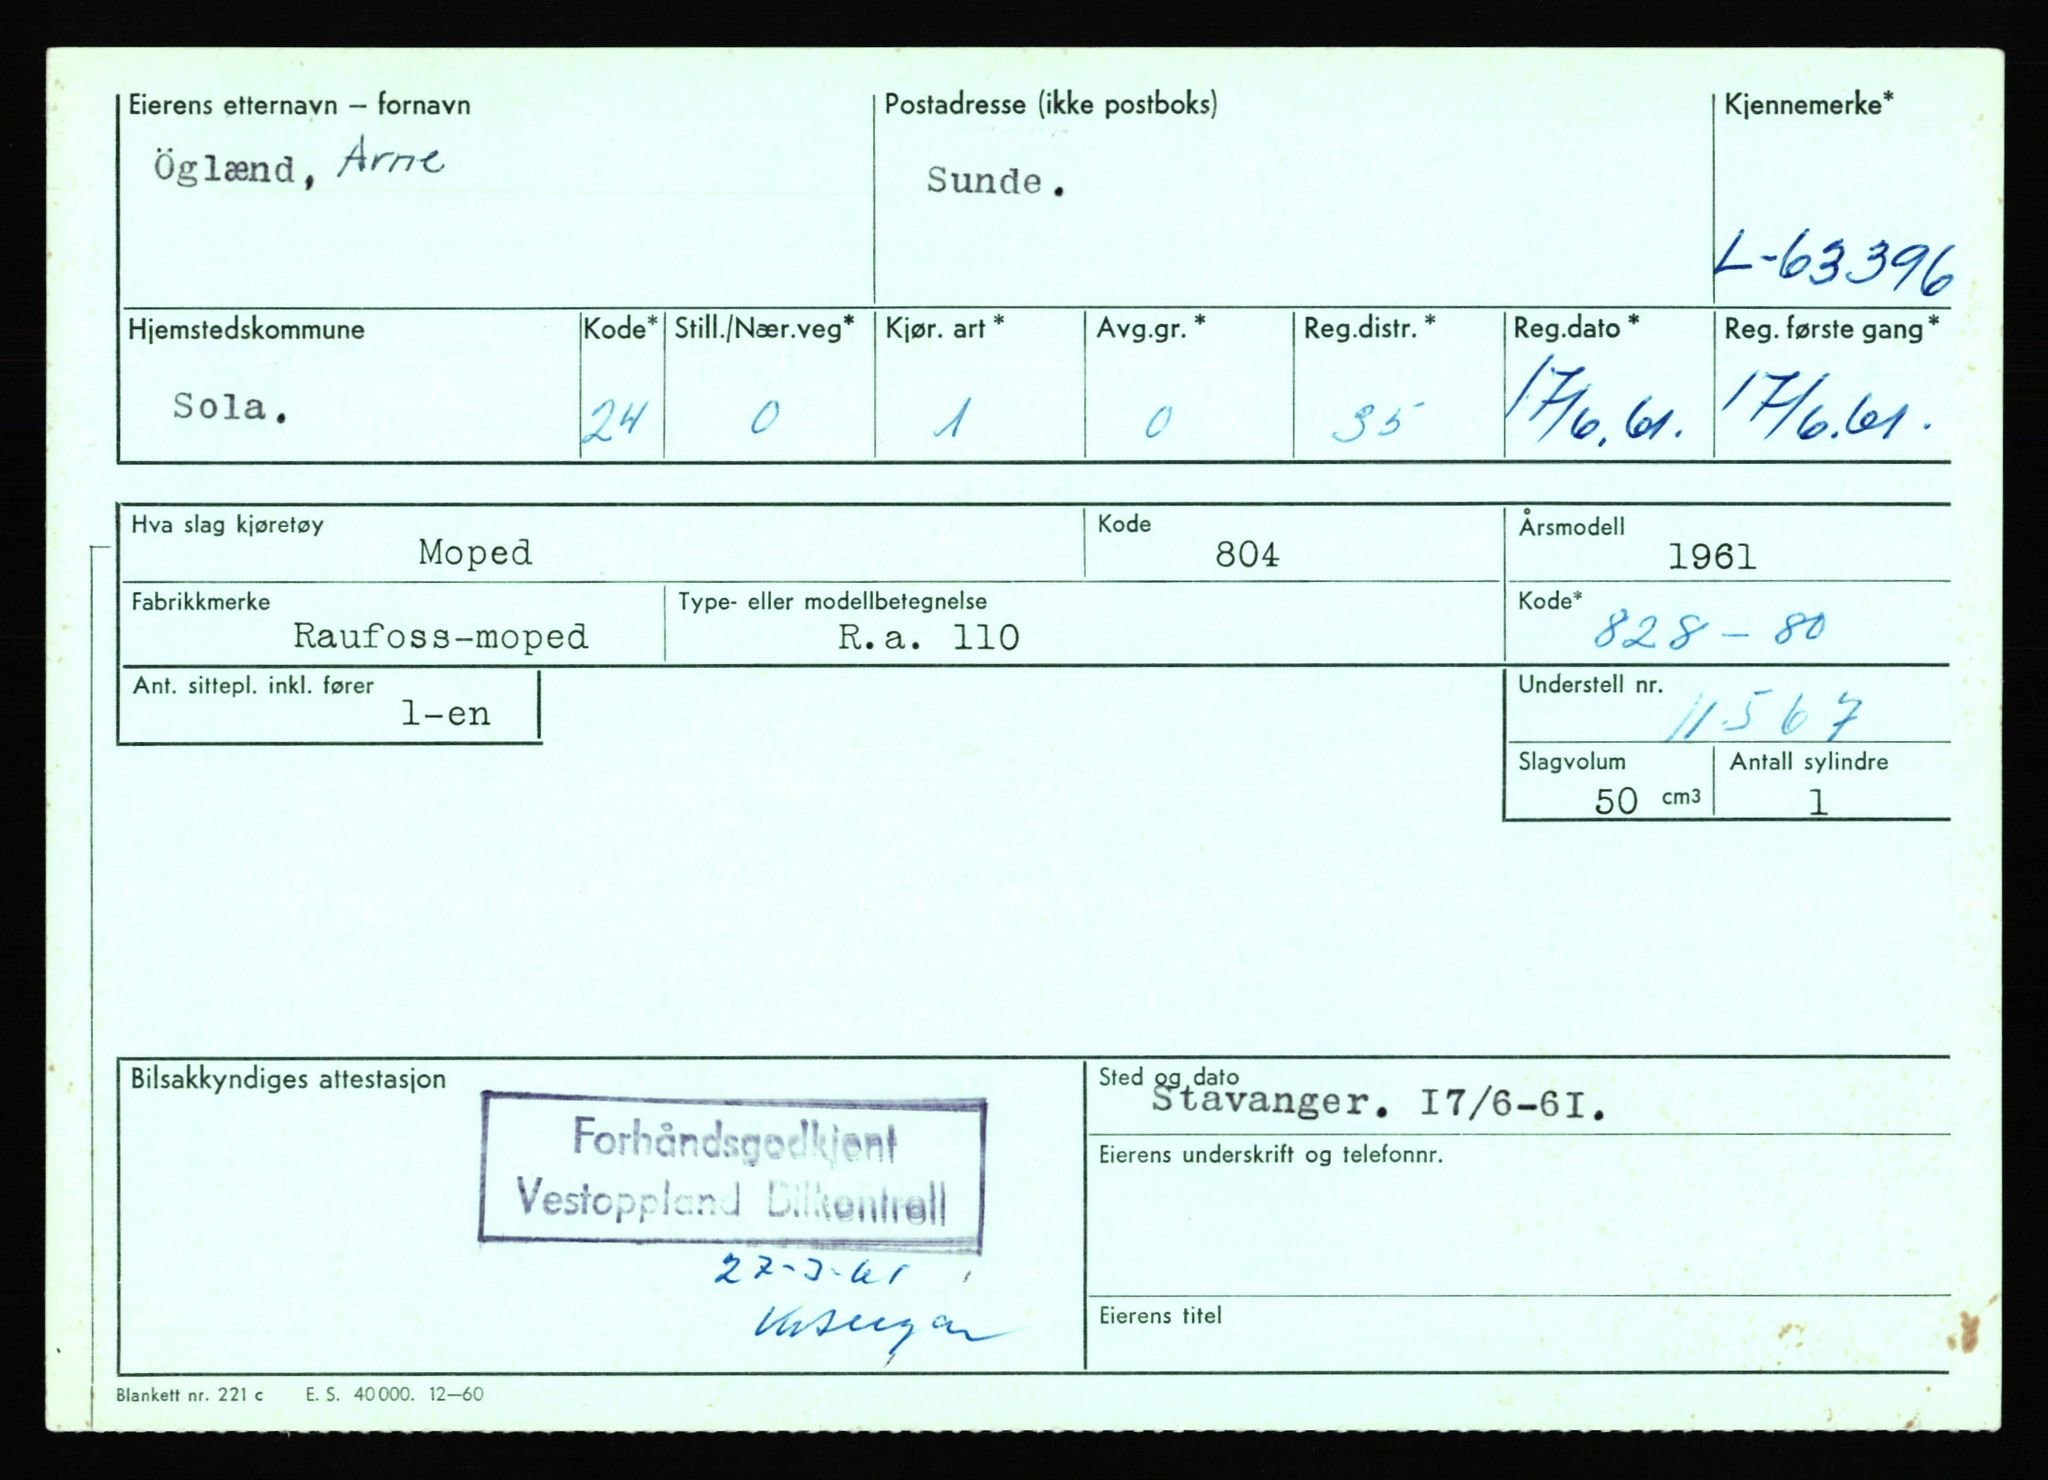 Eierens etternavn – fornavn
Öglænd, Arne
Postadresse (ikke postboks)
Sunde.
Kjennemerke*
L-63396
Hjemstedskommune
Sola.
Kode*
24
Still./Nær.veg*
0
Kjør. art *
1
Avg.gr. *
0
Reg.distr. *
35
Reg.dato *
17/6.61.
Reg. første gang*
17/6.61.
Hva slag kjøretøy
Moped
Kode
804
Årsmodell
1961
Fabrikkmerke
Raufoss-moped
Type- eller modellbetegnelse
R.a. 110
Kode*
828 – 80
Ant. sittepl. inkl. fører
1-en
Understell nr.
11567
Slagvolum
50 cm3
Antall sylindre
1
Bilsakkyndiges attestasjon
Forhåndsgodkjent
Vestoppland Bilkontroll
27-3-61
Sted og dato
Stavanger. I7/6-6I.
Eierens underskrift og telefonnr.
Eierens titel
Blankett nr. 221 c E. S. 40 000. 12–60